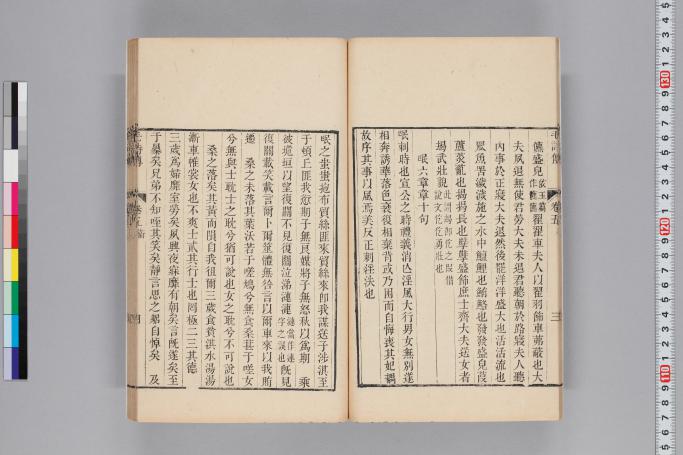 儦盛皃依玉篇作儦儦翟翟車夫人以翟羽飾車茀蔽也大
夫夙退無使君勞大夫未退君聽朝於路寢夫人聽
內事於正寢大夫退然後罷洋洋盛大也活活流也
罛魚罟濊濊施之水中鱣鯉也鮪鮥也發發盛皃葭
蘆菼薍也揭揭長也孽孽盛飾庶士齊大夫送女者
朅武壯皃此謂朅即仡之假借說文仡仡勇壯也
氓六章章十句
氓刺時也宣公之時禮義消亾淫風大行男女無別遂
相奔誘華落色衰復相棄背或乃困而自悔喪其妃耦
故序其事以風焉美反正刺淫泆也
氓之蚩蚩抱布貿絲匪來貿絲來即我謀送子涉淇至
于頓丘匪我愆期子無良媒將子無怒秋以爲期 乘
彼垝垣以望復關不見復關泣涕漣漣漣當作連字之誤也旣見
復關載笑載言爾卜爾筮體無咎言以爾車來以我賄
遷 桑之未落其葉沃若于嗟鳩兮無食桑葚于嗟女
兮無與士耽士之耽兮猶可說也女之耽兮不可說也
桑之落矣其黃而隕自我徂爾三歲食貧淇水湯湯
漸車帷裳女也不爽士貳其行士也罔極二三其德
三歲爲婦靡室勞矣夙興夜寐靡有朝矣言旣遂矣至
于暴矣兄弟不知咥其笑矣靜言思之躬自悼矣 及
130
120
110